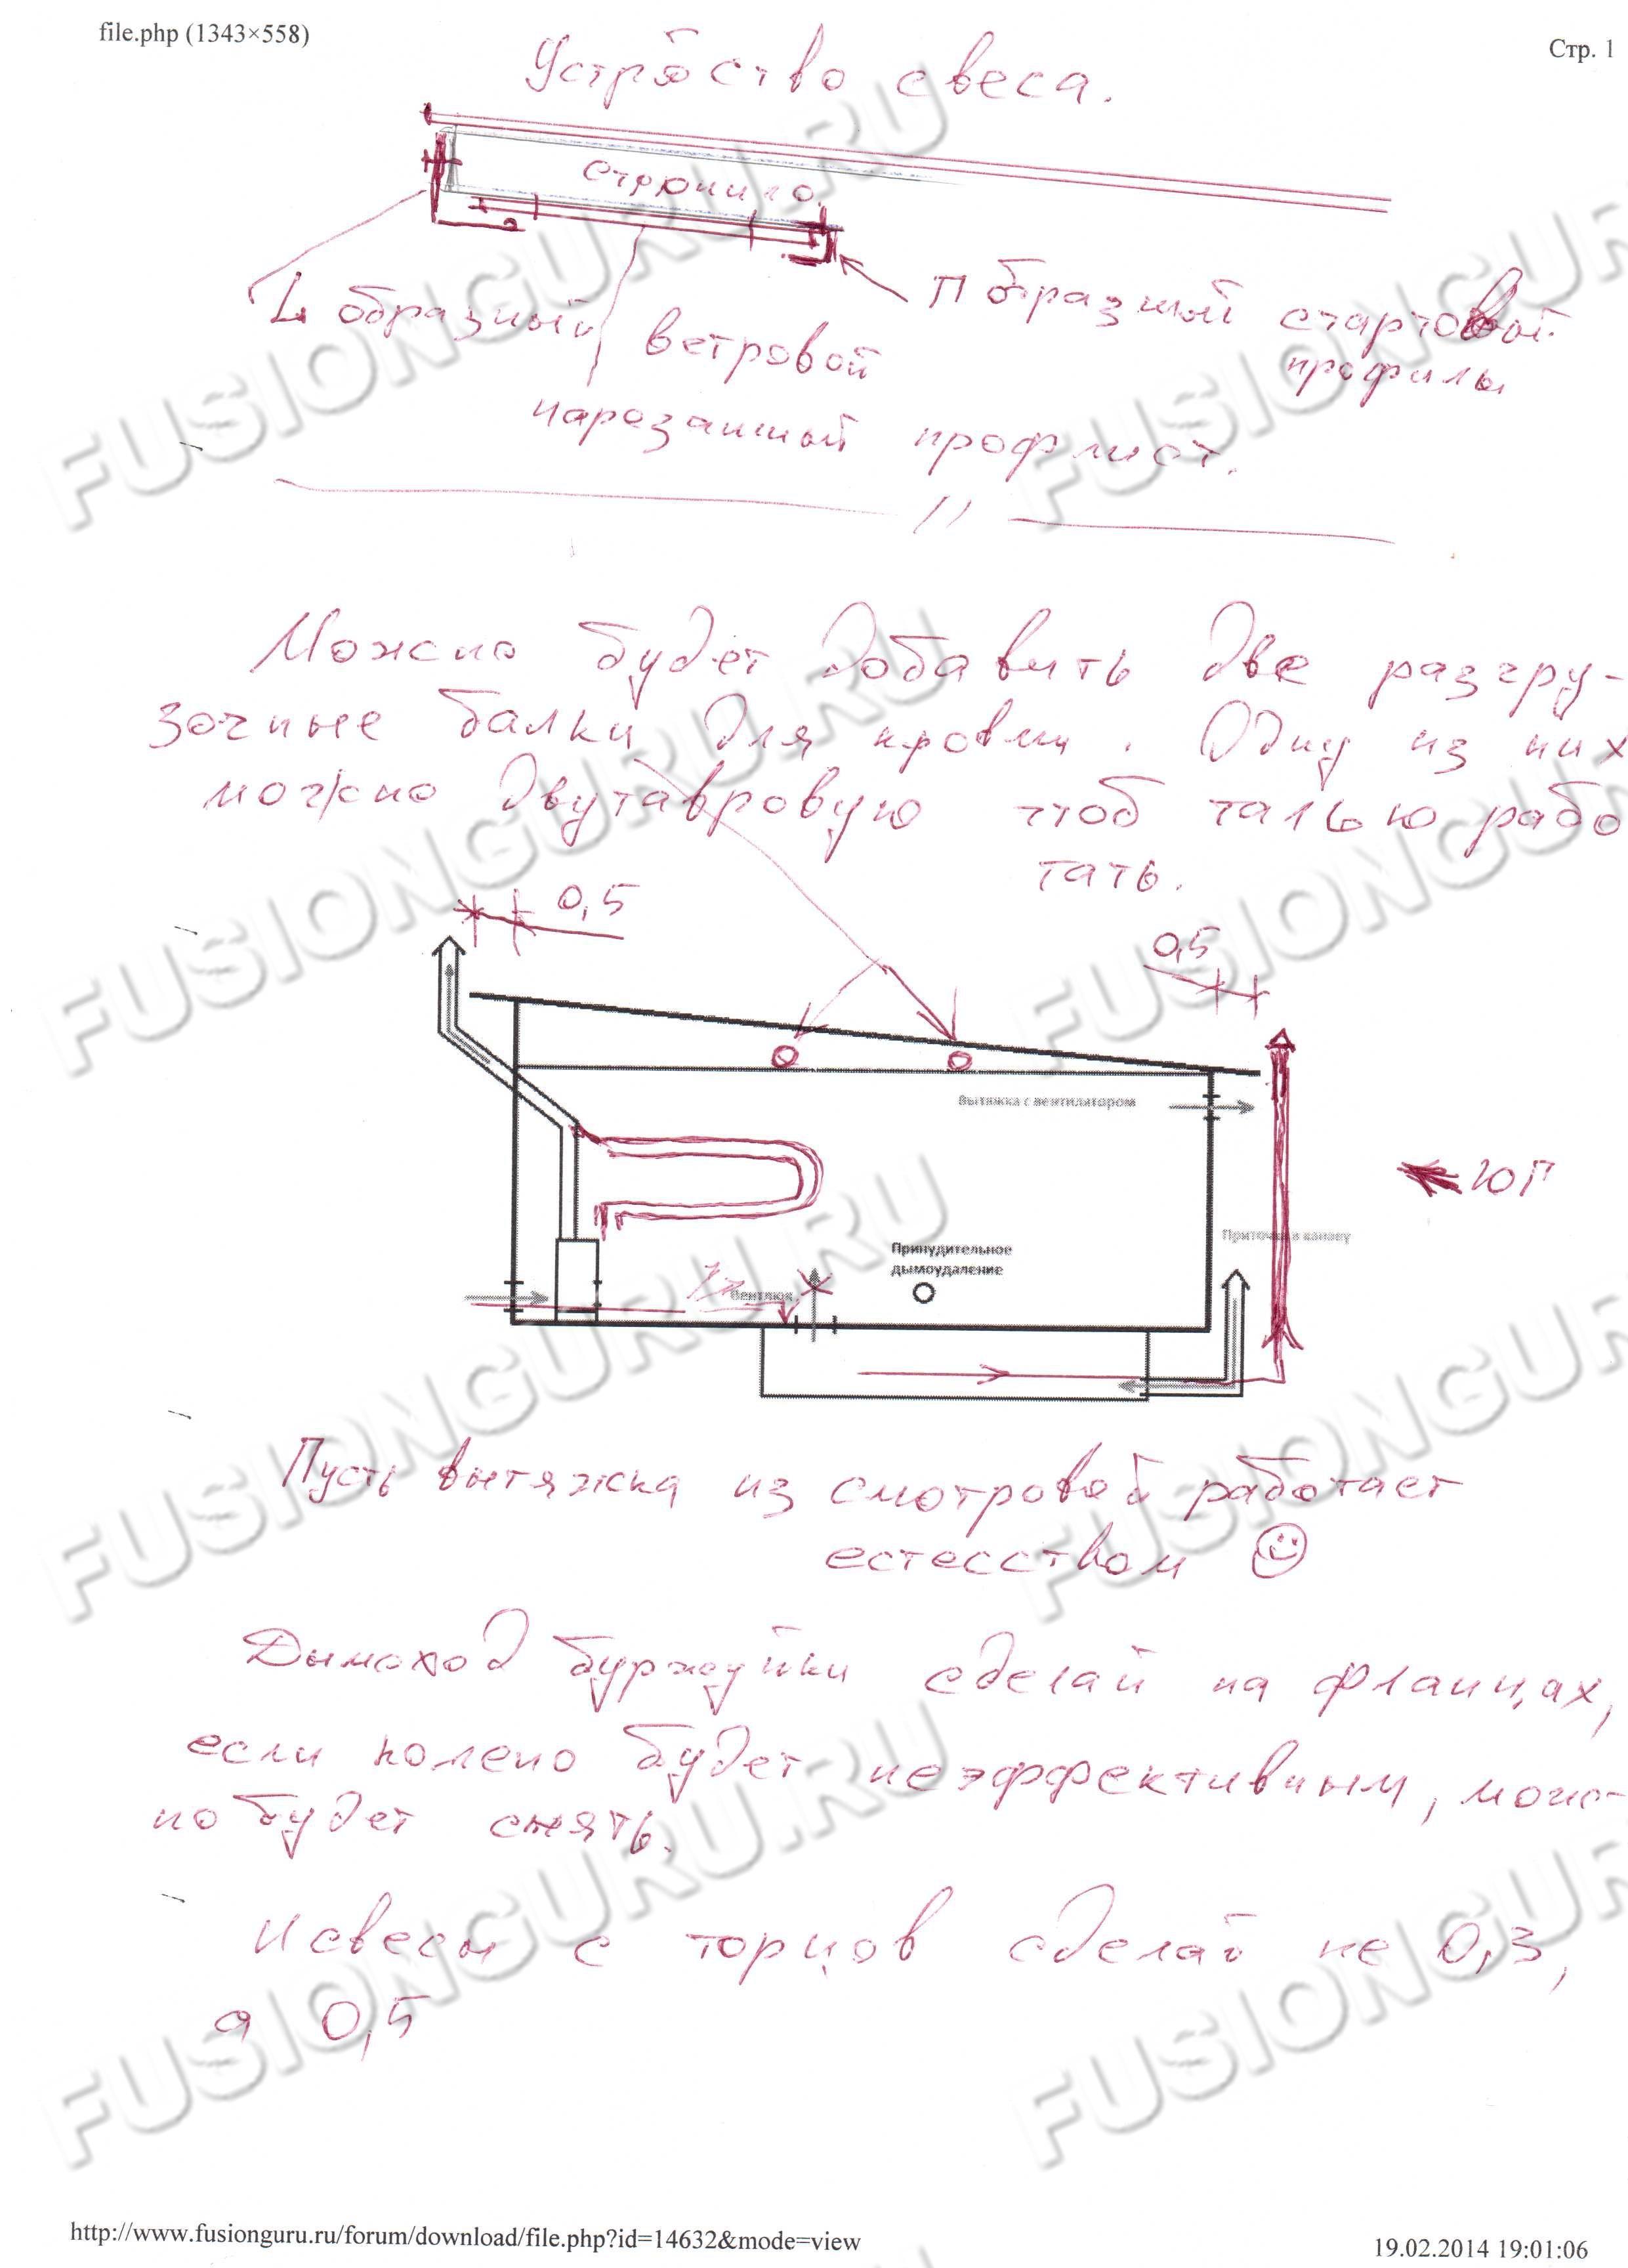 file.php (1343×558)
Стр. 1
Устройство свеса.
стропило.
L образный ветровой
П образный стартовый
профиль
нарезанный профлист.
Можно будет добавить две разгру-
зочные балки для кровли. Одну из них
можно двутавровую чтоб талью рабо
тать.
0,5
0,5
Вытяжка с вентилятором
ЮГ
Приточка в канаву
Принудительное
дымоудаление
Вентлюк
Пусть вытяжка из смотровой работает
естесством
Дымоход буржуйки сделай на фланцах,
если колено будет неэффективным, мож-
но будет снять.
И свесы с торцов сделай не 0,3,
а 0,5
FUSIONGURU.RU
http://www.fusionguru.ru/forum/download/file.php?id=14632&mode=view
19.02.2014 19:01:06